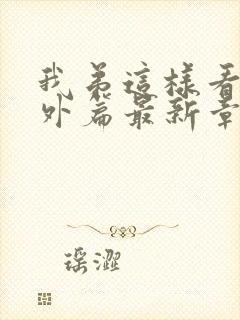 我弟這樣看
外篇最新章
瑶澀